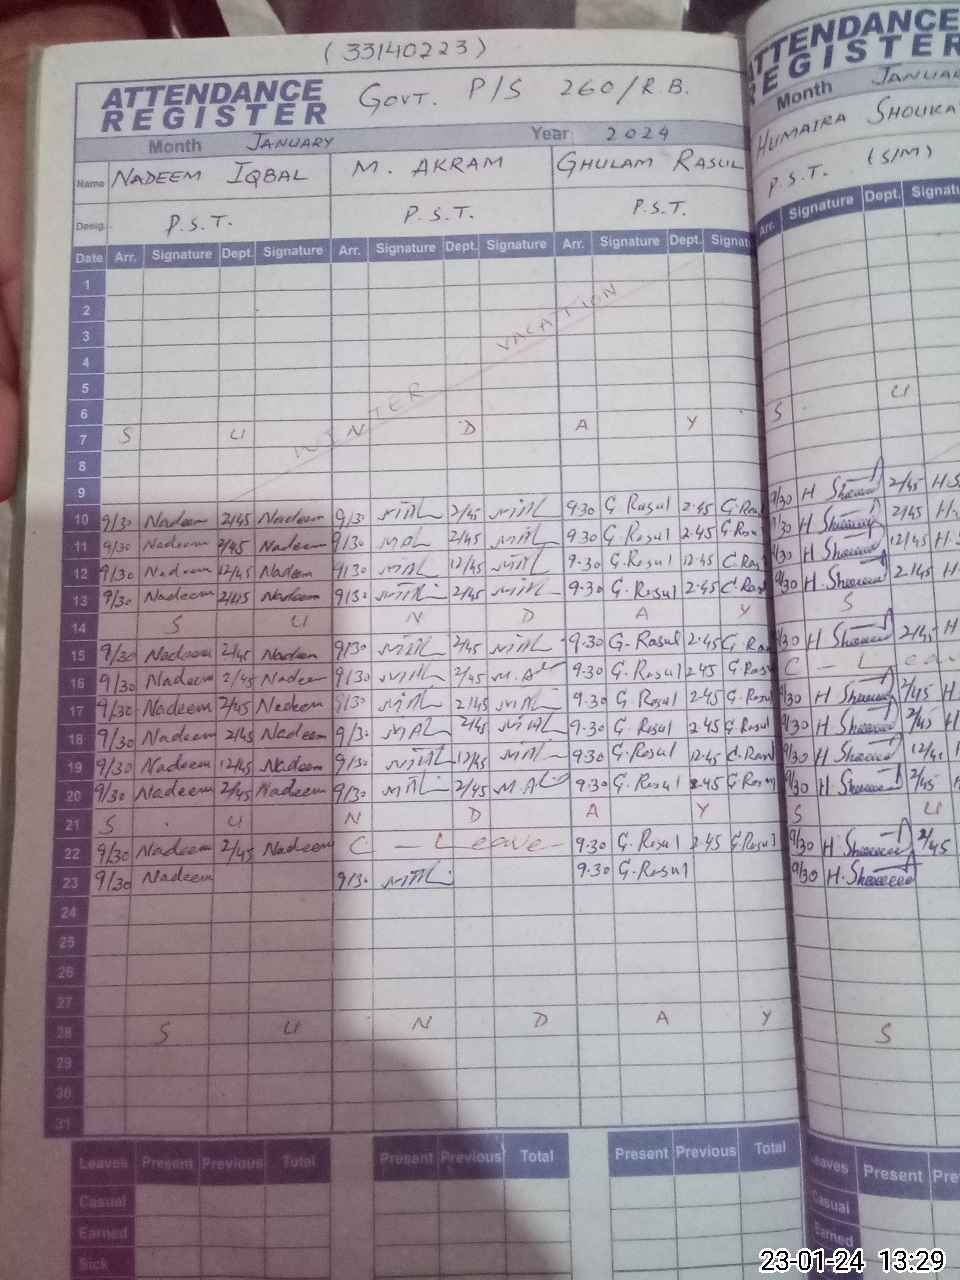 (33140223)
ATTENDANCE REGISTER GOVT. P/S 260/R.B.
Month JANUARY Year 2024
Name NADEEM IQBAL M. AKRAM GHULAM RASUL
Desig. P.S.T. P.S.T. P.S.T.
Date Arr. Signature Dept. Signature Arr. Signature Dept. Signature Arr. Signature Dept. Signat
1
2
3
4
5
6
WINTER VACATION
7 S U N D A Y
8
9
10 9/30 Nadeem 2/45 Nadeem 9/30 2/45 9.30 G.Rasul 2.45
11 9/30 Nadeem 2/45 Nadeem 9/30 2/45 9.30 G.Rasul 2.45
12 9/30 Nadeem 12/45 Nadeem 9/30 12/45 9.30 G.Rasul 12.45
13 9/30 Nadeem 2/45 Nadeem 9/30 2/45 9.30 G.Rasul 2.45
14 S U N D A Y
15 9/30 Nadeem 2/45 Nadeem 9/30 2/45 9.30 G.Rasul 2.45
16 9/30 Nadeem 2/45 Nadeem 9/30 2/45 9.30 G.Rasul 2.45
17 9/30 Nadeem 2/45 Nadeem 9/30 2/45 9.30 G.Rasul 2.45
18 9/30 Nadeem 2/45 Nadeem 9/30 2/45 9.30 G.Rasul 2.45 G.Rasul
19 9/30 Nadeem 12/45 Nadeem 9/30 12/45 9.30 G.Rasul 12.45
20 9/30 Nadeem 2/45 Nadeem 9/30 2/45 9.30 G.Rasul 2.45
21 S U N D A Y
22 9/30 Nadeem 2/45 Nadeem C - Leave 9.30 G.Rasul 2.45 G.Rasul
23 9/30 Nadeem 9/30 9.30 G.Rasul
24
25
26
27
28 S U N D A Y
29
30
31
Leaves Present Previous Total Present Previous Total Present Previous Total
Casual
Earned
Sick
ATTENDANCE
REGISTER
Month JANUAR
HUMAIRA SHOUKA
P.S.T. (S/M)
Arr. Signature Dept. Signatu
S U
9/30 H 2/45 H.S
9/30 H 2/45 H
9/30 H 12/45 H
9/30 H. 2/45 H
S
9/30 H 2/45 H
C - Leave
9/30 H 2/45 H
9/30 H 2/45 H
9/30 H 12/45 H
9/30 H. 2/45
S U
9/30 H 2/45
9/30 H.
S
Leaves Present Pre
Casual
Earned
23-01-24 13:29